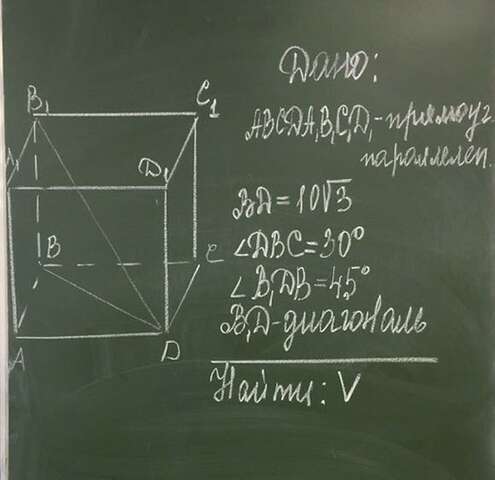 Дано:
ABCDA₁B₁C₁D₁ - прямоуг.
параллелеп.
BD = 10√3
∠DBC = 30°
∠B₁DB = 45°
B₁D - диагональ
Найти: V
B₁
C₁
A₁
D₁
B
C
A
D